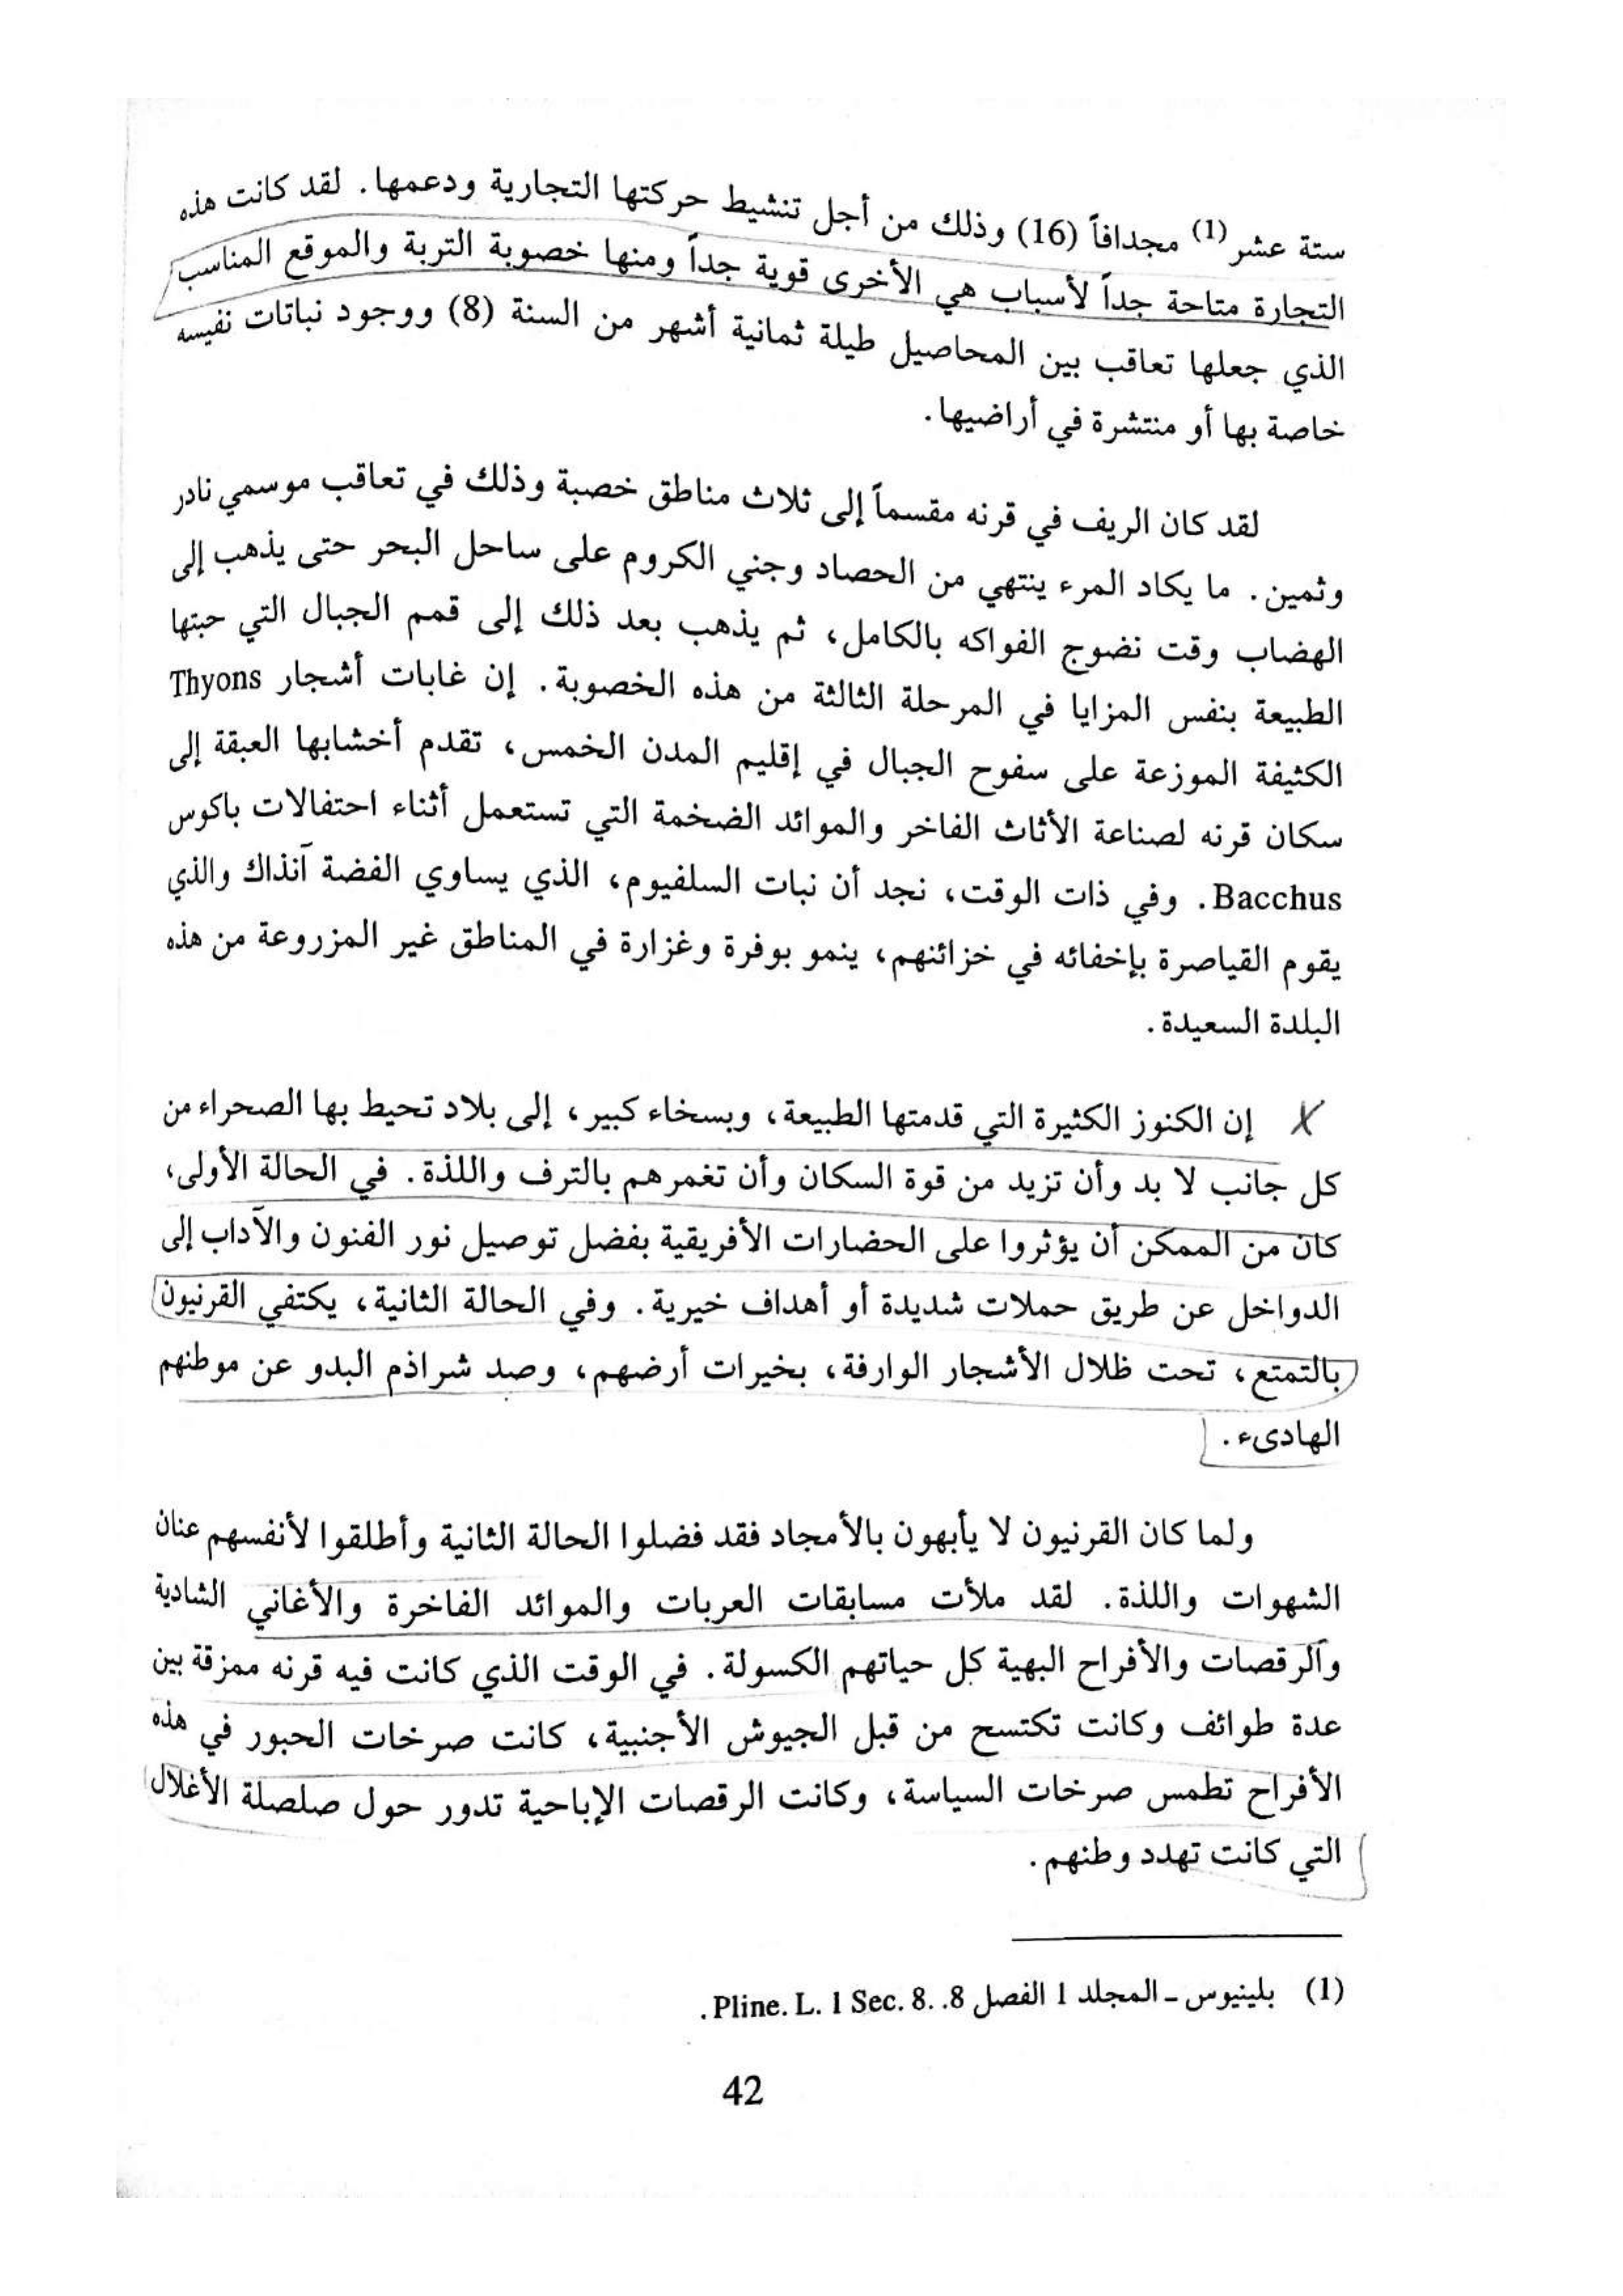 ستة عشر (1) مجدافاً (16) وذلك من أجل تنشيط حركتها التجارية ودعمها. لقد كانت هذه
التجارة متاحة جداً لأسباب هي الأخرى قوية جداً ومنها خصوبة التربة والموقع المناسب
الذي جعلها تعاقب بين المحاصيل طيلة ثمانية أشهر من السنة (8) ووجود نباتات نفيسه
خاصة بها أو منتشرة في أراضيها.
لقد كان الريف في قرنه مقسماً إلى ثلاث مناطق خصبة وذلك في تعاقب موسمي نادر
وثمين. ما يكاد المرء ينتهي من الحصاد وجني الكروم على ساحل البحر حتى يذهب إلى
الهضاب وقت نضوج الفواكه بالكامل، ثم يذهب بعد ذلك إلى قمم الجبال التي حبتها
الطبيعة بنفس المزايا في المرحلة الثالثة من هذه الخصوبة. إن غابات أشجار Thyons
الكثيفة الموزعة على سفوح الجبال في إقليم المدن الخمس، تقدم أخشابها العبقة إلى
سكان قرنه لصناعة الأثاث الفاخر والموائد الضخمة التي تستعمل أثناء احتفالات باكوس
Bacchus. وفي ذات الوقت، نجد أن نبات السلفيوم، الذي يساوي الفضة آنذاك والذي
يقوم القياصرة بإخفائه في خزائنهم، ينمو بوفرة وغزارة في المناطق غير المزروعة من هذه
البلدة السعيدة.
X إن الكنوز الكثيرة التي قدمتها الطبيعة، وبسخاء كبير، إلى بلاد تحيط بها الصحراء من
كل جانب لا بد وأن تزيد من قوة السكان وأن تغمرهم بالترف واللذة. في الحالة الأولى،
كان من الممكن أن يؤثروا على الحضارات الأفريقية بفضل توصيل نور الفنون والآداب إلى
الدواخل عن طريق حملات شديدة أو أهداف خيرية. وفي الحالة الثانية، يكتفي القرنيون
بالتمتع، تحت ظلال الأشجار الوارفة، بخيرات أرضهم، وصد شراذم البدو عن موطنهم
الهادىء.
ولما كان القرنيون لا يأبهون بالأمجاد فقد فضلوا الحالة الثانية وأطلقوا لأنفسهم عنان
الشهوات واللذة. لقد ملأت مسابقات العربات والموائد الفاخرة والأغاني الشادية
والرقصات والأفراح البهية كل حياتهم الكسولة. في الوقت الذي كانت فيه قرنه ممزقة بين
عدة طوائف وكانت تكتسح من قبل الجيوش الأجنبية، كانت صرخات الحبور في هذه
الأفراح تطمس صرخات السياسة، وكانت الرقصات الإباحية تدور حول صلصلة الأغلال
التي كانت تهدد وطنهم.
(1) بلينيوس - المجلد 1 الفصل 8. .Pline. L. 1 Sec. 8.
42